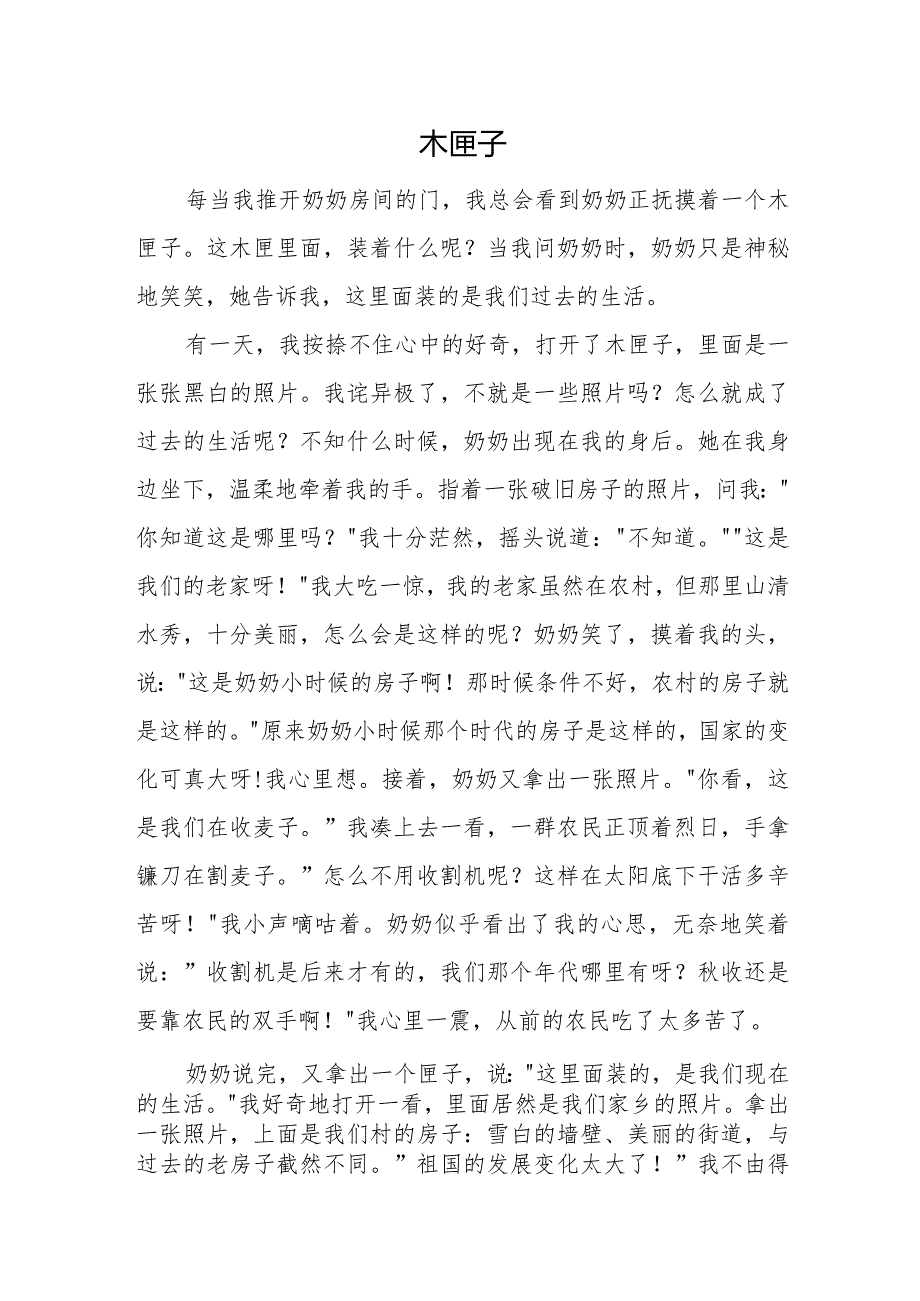 木匣子
每当我推开奶奶房间的门，我总会看到奶奶正抚摸着一个木
匣子。这木匣里面，装着什么呢？当我问奶奶时，奶奶只是神秘
地笑笑，她告诉我，这里面装的是我们过去的生活。
有一天，我按捺不住心中的好奇，打开了木匣子，里面是一
张张黑白的照片。我诧异极了，不就是一些照片吗？怎么就成了
过去的生活呢？不知什么时候，奶奶出现在我的身后。她在我身
边坐下，温柔地牵着我的手。指着一张破旧房子的照片，问我："
你知道这是哪里吗？"我十分茫然，摇头说道："不知道。""这是
我们的老家呀！"我大吃一惊，我的老家虽然在农村，但那里山清
水秀，十分美丽，怎么会是这样的呢？奶奶笑了，摸着我的头，
说："这是奶奶小时候的房子啊！那时候条件不好，农村的房子就
是这样的。"原来奶奶小时候那个时代的房子是这样的，国家的变
化可真大呀!我心里想。接着，奶奶又拿出一张照片。"你看，这
是我们在收麦子。”我凑上去一看，一群农民正顶着烈日，手拿
镰刀在割麦子。”怎么不用收割机呢？这样在太阳底下干活多辛
苦呀！"我小声嘀咕着。奶奶似乎看出了我的心思，无奈地笑着
说：”收割机是后来才有的，我们那个年代哪里有呀？秋收还是
要靠农民的双手啊！"我心里一震，从前的农民吃了太多苦了。
奶奶说完，又拿出一个匣子，说："这里面装的，是我们现在
的生活。"我好奇地打开一看，里面居然是我们家乡的照片。拿出
一张照片，上面是我们村的房子：雪白的墙壁、美丽的街道，与
过去的老房子截然不同。”祖国的发展变化太大了！”我不由得